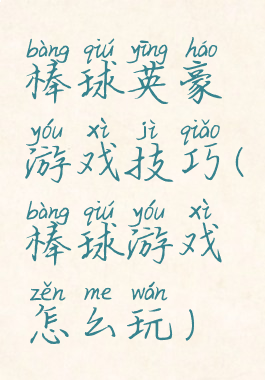 bàng qiú yīng háo
棒球英豪
yóu xì jì qiǎo
游戏技巧(
bàng qiú yóu xì
棒球游戏
zěn me wán
怎么玩)